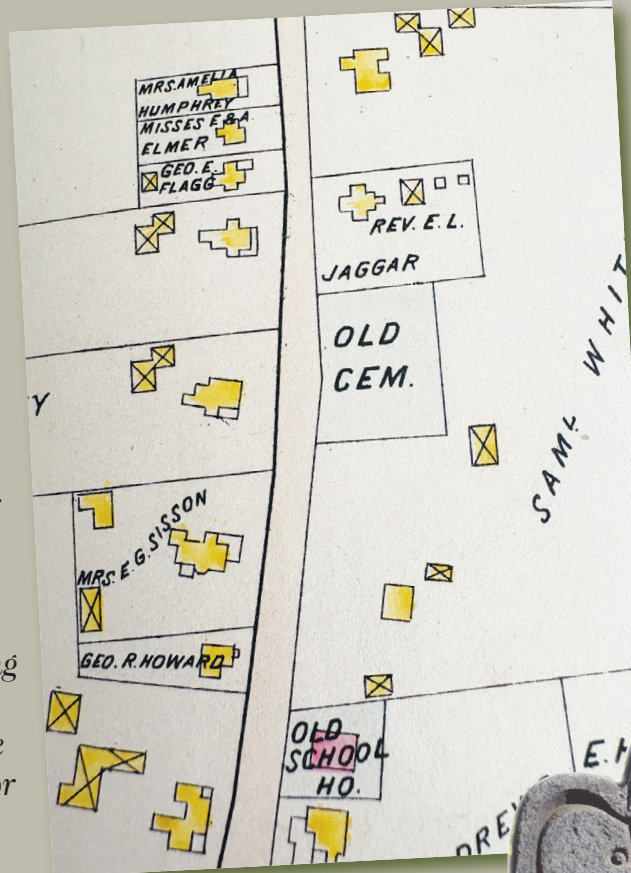 MRS. AMELIA
HUMPHREY
MISSES E & A
ELMER
GEO. E.
FLAGG
REV. E. L.
JAGGAR
OLD
CEM.
SAML WHIT
Y
MRS. E. G. SISSON
GEO. R. HOWARD
OLD
SCHOOL
HO.
DREW
E. H
g
e
or